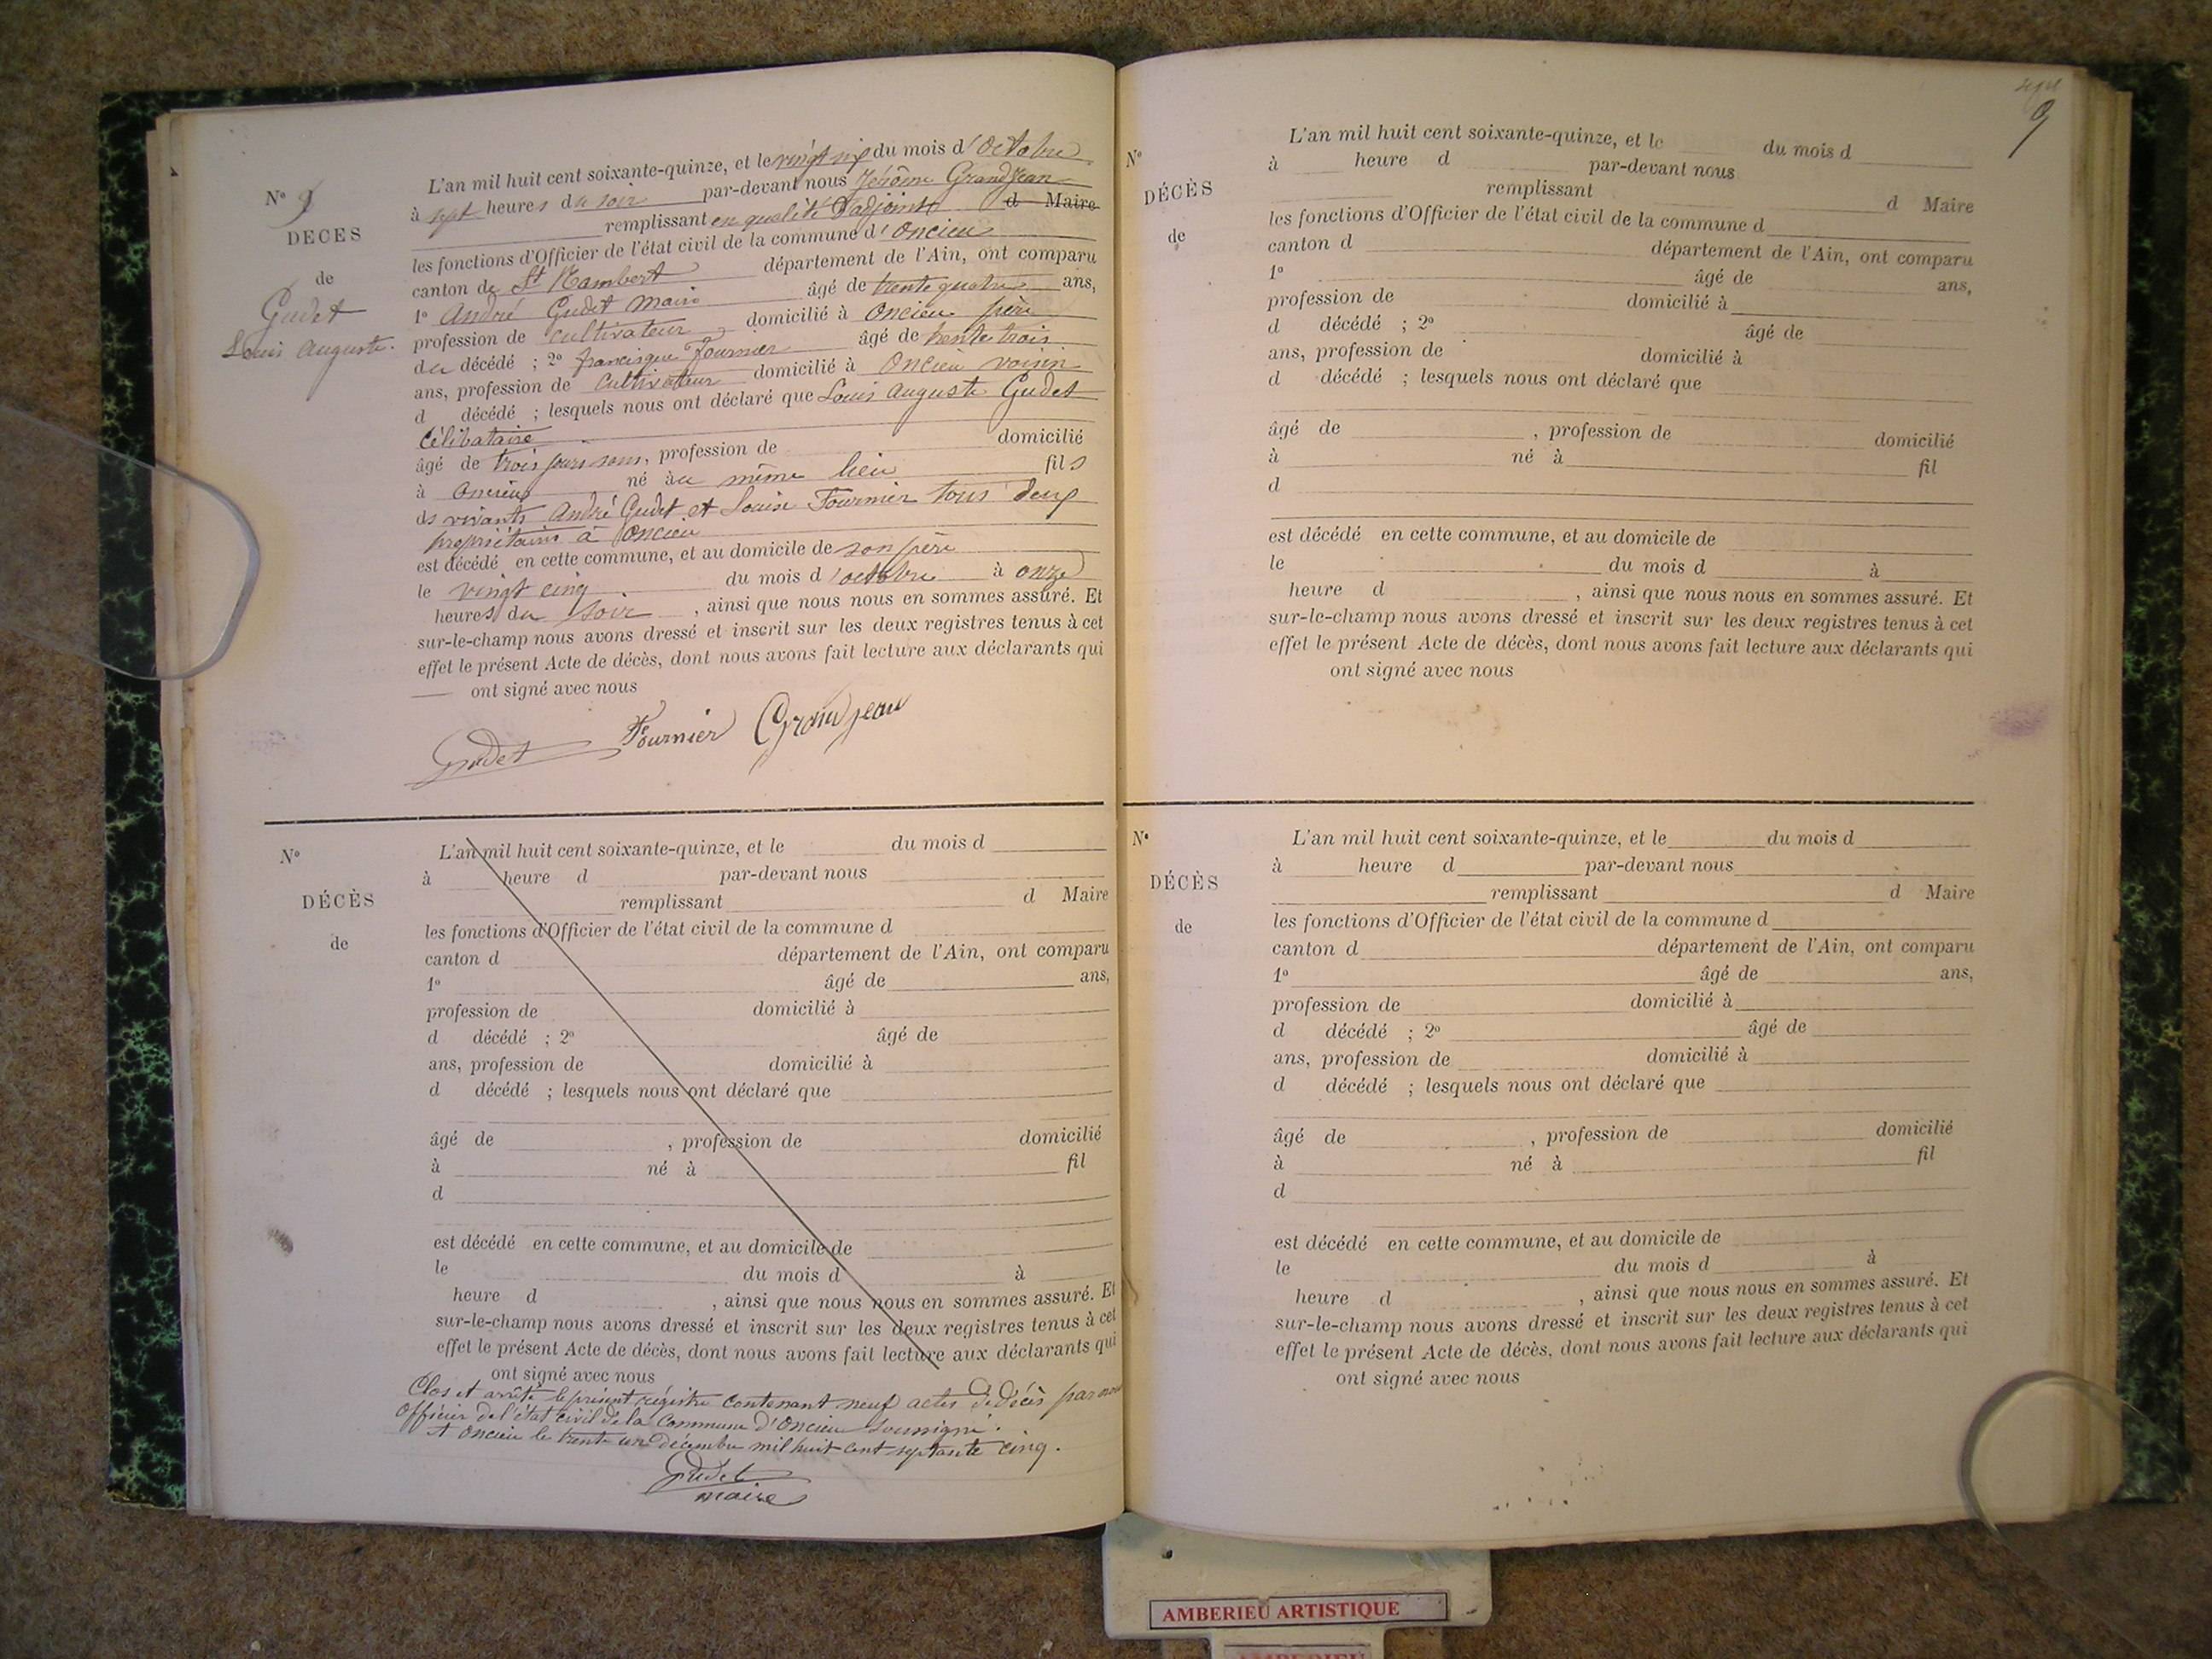 N° 9
DÉCÈS
de
Gudet
Louis Auguste.
L'an mil huit cent soixante-quinze, et le vingt six du mois d'Octobre
à sept heures du soir par-devant nous Jérôme Grandjean
remplissant en qualité d'adjoint d Maire
les fonctions d'Officier de l'état civil de la commune d'Oncieu
canton de St Rambert département de l'Ain, ont comparu
1° André Gudet maire âgé de trente quatre ans,
profession de cultivateur domicilié à Oncieu père
du décédé ; 2° francisque Fournier âgé de trente trois
ans, profession de Cultivateur domicilié à Oncieu voisin
d décédé ; lesquels nous ont déclaré que Louis Auguste Gudet
Célibataire
âgé de trois jours, profession de domicilié
à Oncieu né au même lieu fils
des vivants André Gudet et Louise Fournier tous deux
propriétaires à Oncieu
est décédé en cette commune, et au domicile de son père
le vingt cinq du mois d'octobre à onze
heures du soir , ainsi que nous nous en sommes assuré. Et
sur-le-champ nous avons dressé et inscrit sur les deux registres tenus à cet
effet le présent Acte de décès, dont nous avons fait lecture aux déclarants qui
ont signé avec nous
Gudet Fournier Grandjean
N°
DÉCÈS
de
L'an mil huit cent soixante-quinze, et le du mois d
à heure d par-devant nous
remplissant d Maire
les fonctions d'Officier de l'état civil de la commune d
canton d département de l'Ain, ont comparu
1° âgé de ans,
profession de domicilié à
d décédé ; 2° âgé de
ans, profession de domicilié à
d décédé ; lesquels nous ont déclaré que
âgé de , profession de domicilié
à né à fil
d
est décédé en cette commune, et au domicile de
le du mois d à
heure d , ainsi que nous nous en sommes assuré. Et
sur-le-champ nous avons dressé et inscrit sur les deux registres tenus à cet
effet le présent Acte de décès, dont nous avons fait lecture aux déclarants qui
ont signé avec nous
Clos et arrêté le présent régistre contenant neuf actes de décès par nous
Officier de l'état civil de la Commune d'Oncieu soussigné.
A Oncieu le trente un décembre mil huit cent septante cinq.
Gudet
maire
9
N°
DÉCÈS
de
L'an mil huit cent soixante-quinze, et le du mois d
à heure d par-devant nous
remplissant d Maire
les fonctions d'Officier de l'état civil de la commune d
canton d département de l'Ain, ont comparu
1° âgé de ans,
profession de domicilié à
d décédé ; 2° âgé de
ans, profession de domicilié à
d décédé ; lesquels nous ont déclaré que
âgé de , profession de domicilié
à né à fil
d
est décédé en cette commune, et au domicile de
le du mois d à
heure d , ainsi que nous nous en sommes assuré. Et
sur-le-champ nous avons dressé et inscrit sur les deux registres tenus à cet
effet le présent Acte de décès, dont nous avons fait lecture aux déclarants qui
ont signé avec nous
N°
DÉCÈS
de
L'an mil huit cent soixante-quinze, et le du mois d
à heure d par-devant nous
remplissant d Maire
les fonctions d'Officier de l'état civil de la commune d
canton d département de l'Ain, ont comparu
1° âgé de ans,
profession de domicilié à
d décédé ; 2° âgé de
ans, profession de domicilié à
d décédé ; lesquels nous ont déclaré que
âgé de , profession de domicilié
à né à fil
d
est décédé en cette commune, et au domicile de
le du mois d à
heure d , ainsi que nous nous en sommes assuré. Et
sur-le-champ nous avons dressé et inscrit sur les deux registres tenus à cet
effet le présent Acte de décès, dont nous avons fait lecture aux déclarants qui
ont signé avec nous
AMBERIEU ARTISTIQUE
AMBERIEU